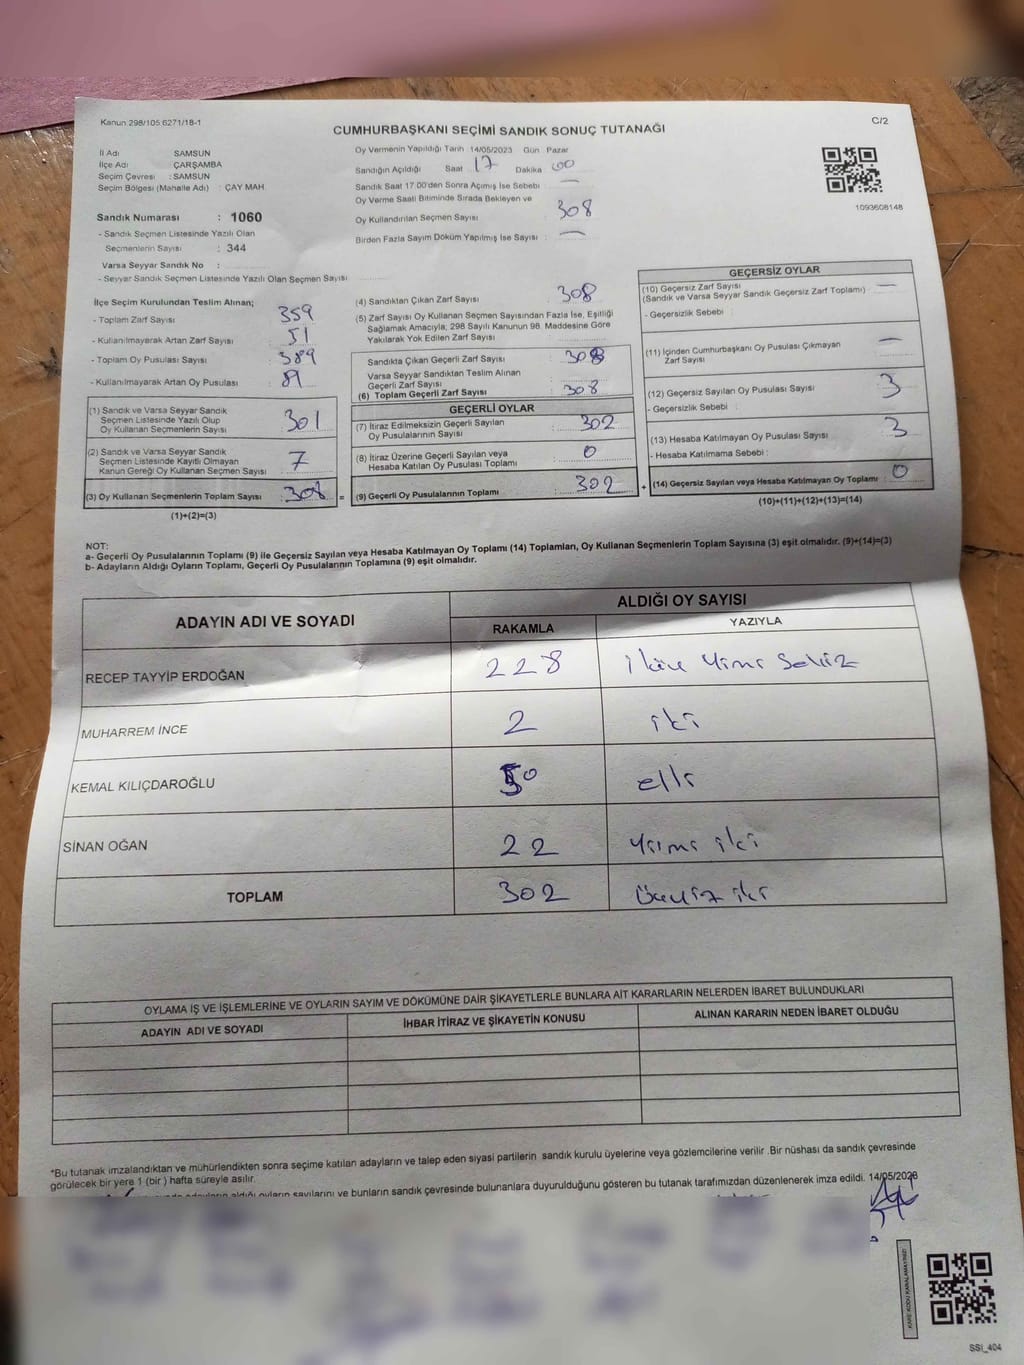 Kanun 298/105 6271/18-1
C/2
CUMHURBAŞKANI SEÇİMİ SANDIK SONUÇ TUTANAĞI
İl Adı SAMSUN
İlçe Adı ÇARŞAMBA
Seçim Çevresi : SAMSUN
Seçim Bölgesi (Mahalle Adı) : ÇAY MAH
Sandık Numarası : 1060
- Sandık Seçmen Listesinde Yazılı Olan
Seçmenlerin Sayısı : 344
Varsa Seyyar Sandık No :
- Seyyar Sandık Seçmen Listesinde Yazılı Olan Seçmen Sayısı
Oy Vermenin Yapıldığı Tarih 14/05/2023 Gün Pazar
Sandığın Açıldığı Saat 17 Dakika 00
Sandık Saat 17:00'den Sonra Açımış İse Sebebi : —
Oy Verme Saati Bitiminde Sırada Bekleyen ve
Oy Kullandırılan Seçmen Sayısı : 308
Birden Fazla Sayım Döküm Yapılmış İse Sayısı : —
1093608148
İlçe Seçim Kurulundan Teslim Alınan;
- Toplam Zarf Sayısı 359
- Kullanılmayarak Artan Zarf Sayısı : 51
- Toplam Oy Pusulası Sayısı : 389
- Kullanılmayarak Artan Oy Pusulası : 81
(1) Sandık ve Varsa Seyyar Sandık
Seçmen Listesinde Yazılı Olup
Oy Kullanan Seçmenlerin Sayısı : 301
(2) Sandık ve Varsa Seyyar Sandık
Seçmen Listesinde Kayıtlı Olmayan
Kanun Gereği Oy Kullanan Seçmen Sayısı : 7
(3) Oy Kullanan Seçmenlerin Toplam Sayısı : 308
(1)+(2)=(3)
(4) Sandıktan Çıkan Zarf Sayısı : 308
(5) Zarf Sayısı Oy Kullanan Seçmen Sayısından Fazla İse, Eşitliği
Sağlamak Amacıyla; 298 Sayılı Kanunun 98. Maddesine Göre
Yakılarak Yok Edilen Zarf Sayısı :
Sandıkta Çıkan Geçerli Zarf Sayısı : 308
Varsa Seyyar Sandıktan Teslim Alınan
Geçerli Zarf Sayısı
(6) Toplam Geçerli Zarf Sayısı : 308
GEÇERLİ OYLAR
(7) İtiraz Edilmeksizin Geçerli Sayılan
Oy Pusulalarının Sayısı : 302
(8) İtiraz Üzerine Geçerli Sayılan veya
Hesaba Katılan Oy Pusulası Toplamı : 0
= (9) Geçerli Oy Pusulalarının Toplamı : 302
GEÇERSİZ OYLAR
(10) Geçersiz Zarf Sayısı : —
(Sandık ve Varsa Seyyar Sandık Geçersiz Zarf Toplamı)
- Geçersizlik Sebebi :
(11) İçinden Cumhurbaşkanı Oy Pusulası Çıkmayan
Zarf Sayısı : —
(12) Geçersiz Sayılan Oy Pusulası Sayısı : 3
- Geçersizlik Sebebi :
(13) Hesaba Katılmayan Oy Pusulası Sayısı : 3
- Hesaba Katılmama Sebebi :
+ (14) Geçersiz Sayılan veya Hesaba Katılmayan Oy Toplamı : 0
(10)+(11)+(12)+(13)=(14)
NOT:
a- Geçerli Oy Pusulalarının Toplamı (9) ile Geçersiz Sayılan veya Hesaba Katılmayan Oy Toplamı (14) Toplamları, Oy Kullanan Seçmenlerin Toplam Sayısına (3) eşit olmalıdır. (9)+(14)=(3)
b- Adayların Aldığı Oyların Toplamı, Geçerli Oy Pusulalarının Toplamına (9) eşit olmalıdır.
ADAYIN ADI VE SOYADI
ALDIĞI OY SAYISI
RAKAMLA YAZIYLA
RECEP TAYYİP ERDOĞAN 228 ikiyüz yirmi sekiz
MUHARREM İNCE 2 iki
KEMAL KILIÇDAROĞLU 50 elli
SİNAN OĞAN 22 yirmi iki
TOPLAM 302 üçyüz iki
OYLAMA İŞ VE İŞLEMLERİNE VE OYLARIN SAYIM VE DÖKÜMÜNE DAİR ŞİKAYETLERLE BUNLARA AİT KARARLARIN NELERDEN İBARET BULUNDUKLARI
ADAYIN ADI VE SOYADI İHBAR İTİRAZ VE ŞİKAYETİN KONUSU ALINAN KARARIN NEDEN İBARET OLDUĞU
*Bu tutanak imzalandıktan ve mühürlendikten sonra seçime katılan adayların ve talep eden siyasi partilerin sandık kurulu üyelerine veya gözlemcilerine verilir .Bir nüshası da sandık çevresinde
görülecek bir yere 1 (bir ) hafta süreyle asılır.
adayların aldığı oyların sayılarını ve bunların sandık çevresinde bulunanlara duyurulduğunu gösteren bu tutanak tarafımızdan düzenlenerek imza edildi. 14/05/2023
KARE KODU KARALAMAYINIZ!
SSİ_404